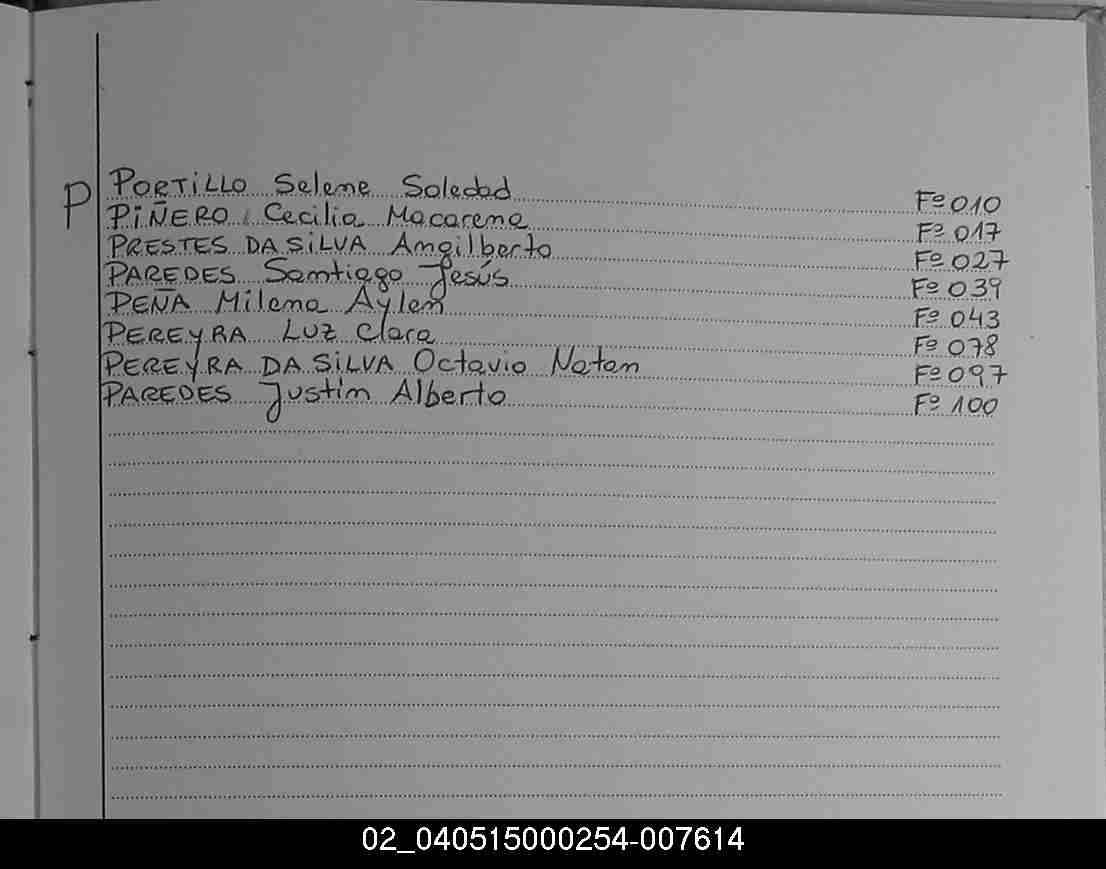 P
PORTILLO Selene Soledad Fº 010
PIÑERO Cecilia Macarena Fº 017
PRESTES DA SILVA Angilberto Fº 027
PAREDES Santiago Jesús Fº 039
PEÑA Milena Aylen Fº 043
PEREYRA Luz Clara Fº 078
PEREYRA DA SILVA Octavio Natan Fº 097
PAREDES Justin Alberto Fº 100
02_040515000254-007614